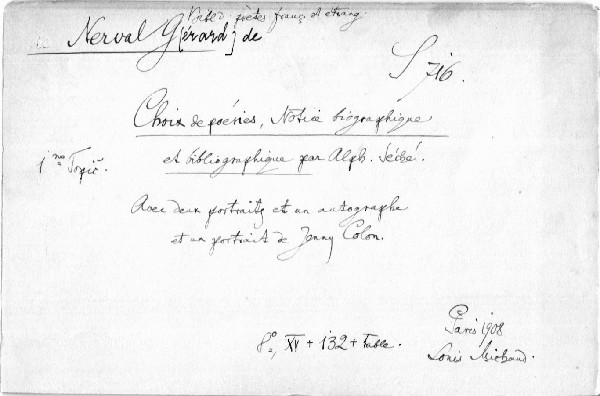 poètes franç. et étrang.
Nerval G[érard] de
S 716.
Choix de poésies, Notice biographique
et bibliographique par Alph. Séché.
Avec deux portraits et un autographe
et un portrait de Jenny Colon.
8°, XV + 132 + table.
Paris 1908
Louis Michaud.